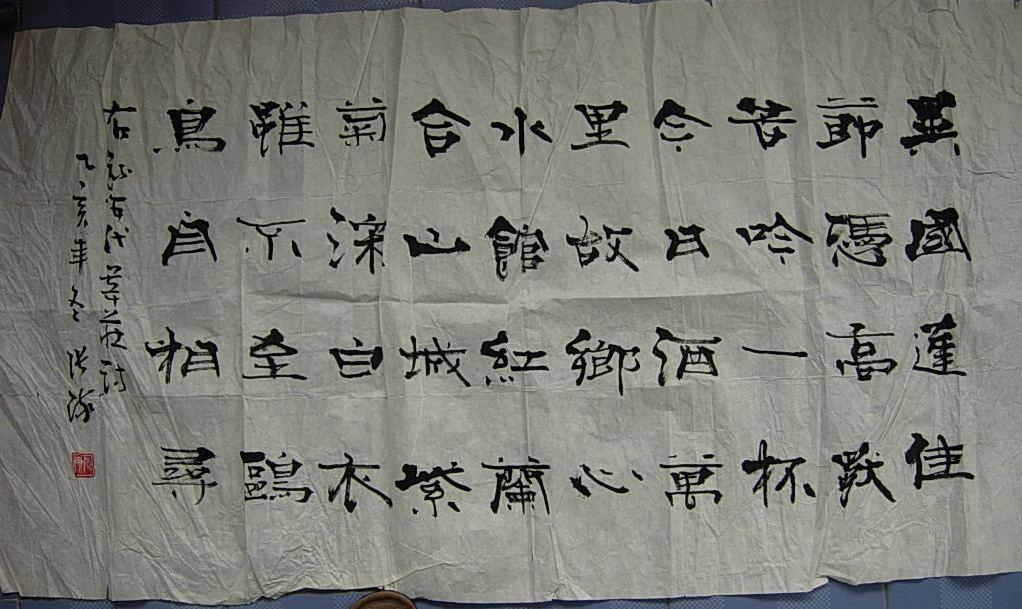 異國逢佳
節憑高獨
苦吟一杯
今日酒萬
里故鄉心
水館紅蘭
合山城紫
菊深白衣
雖不至鷗
鳥自相尋
右錄古代韋莊詩
乙亥年冬